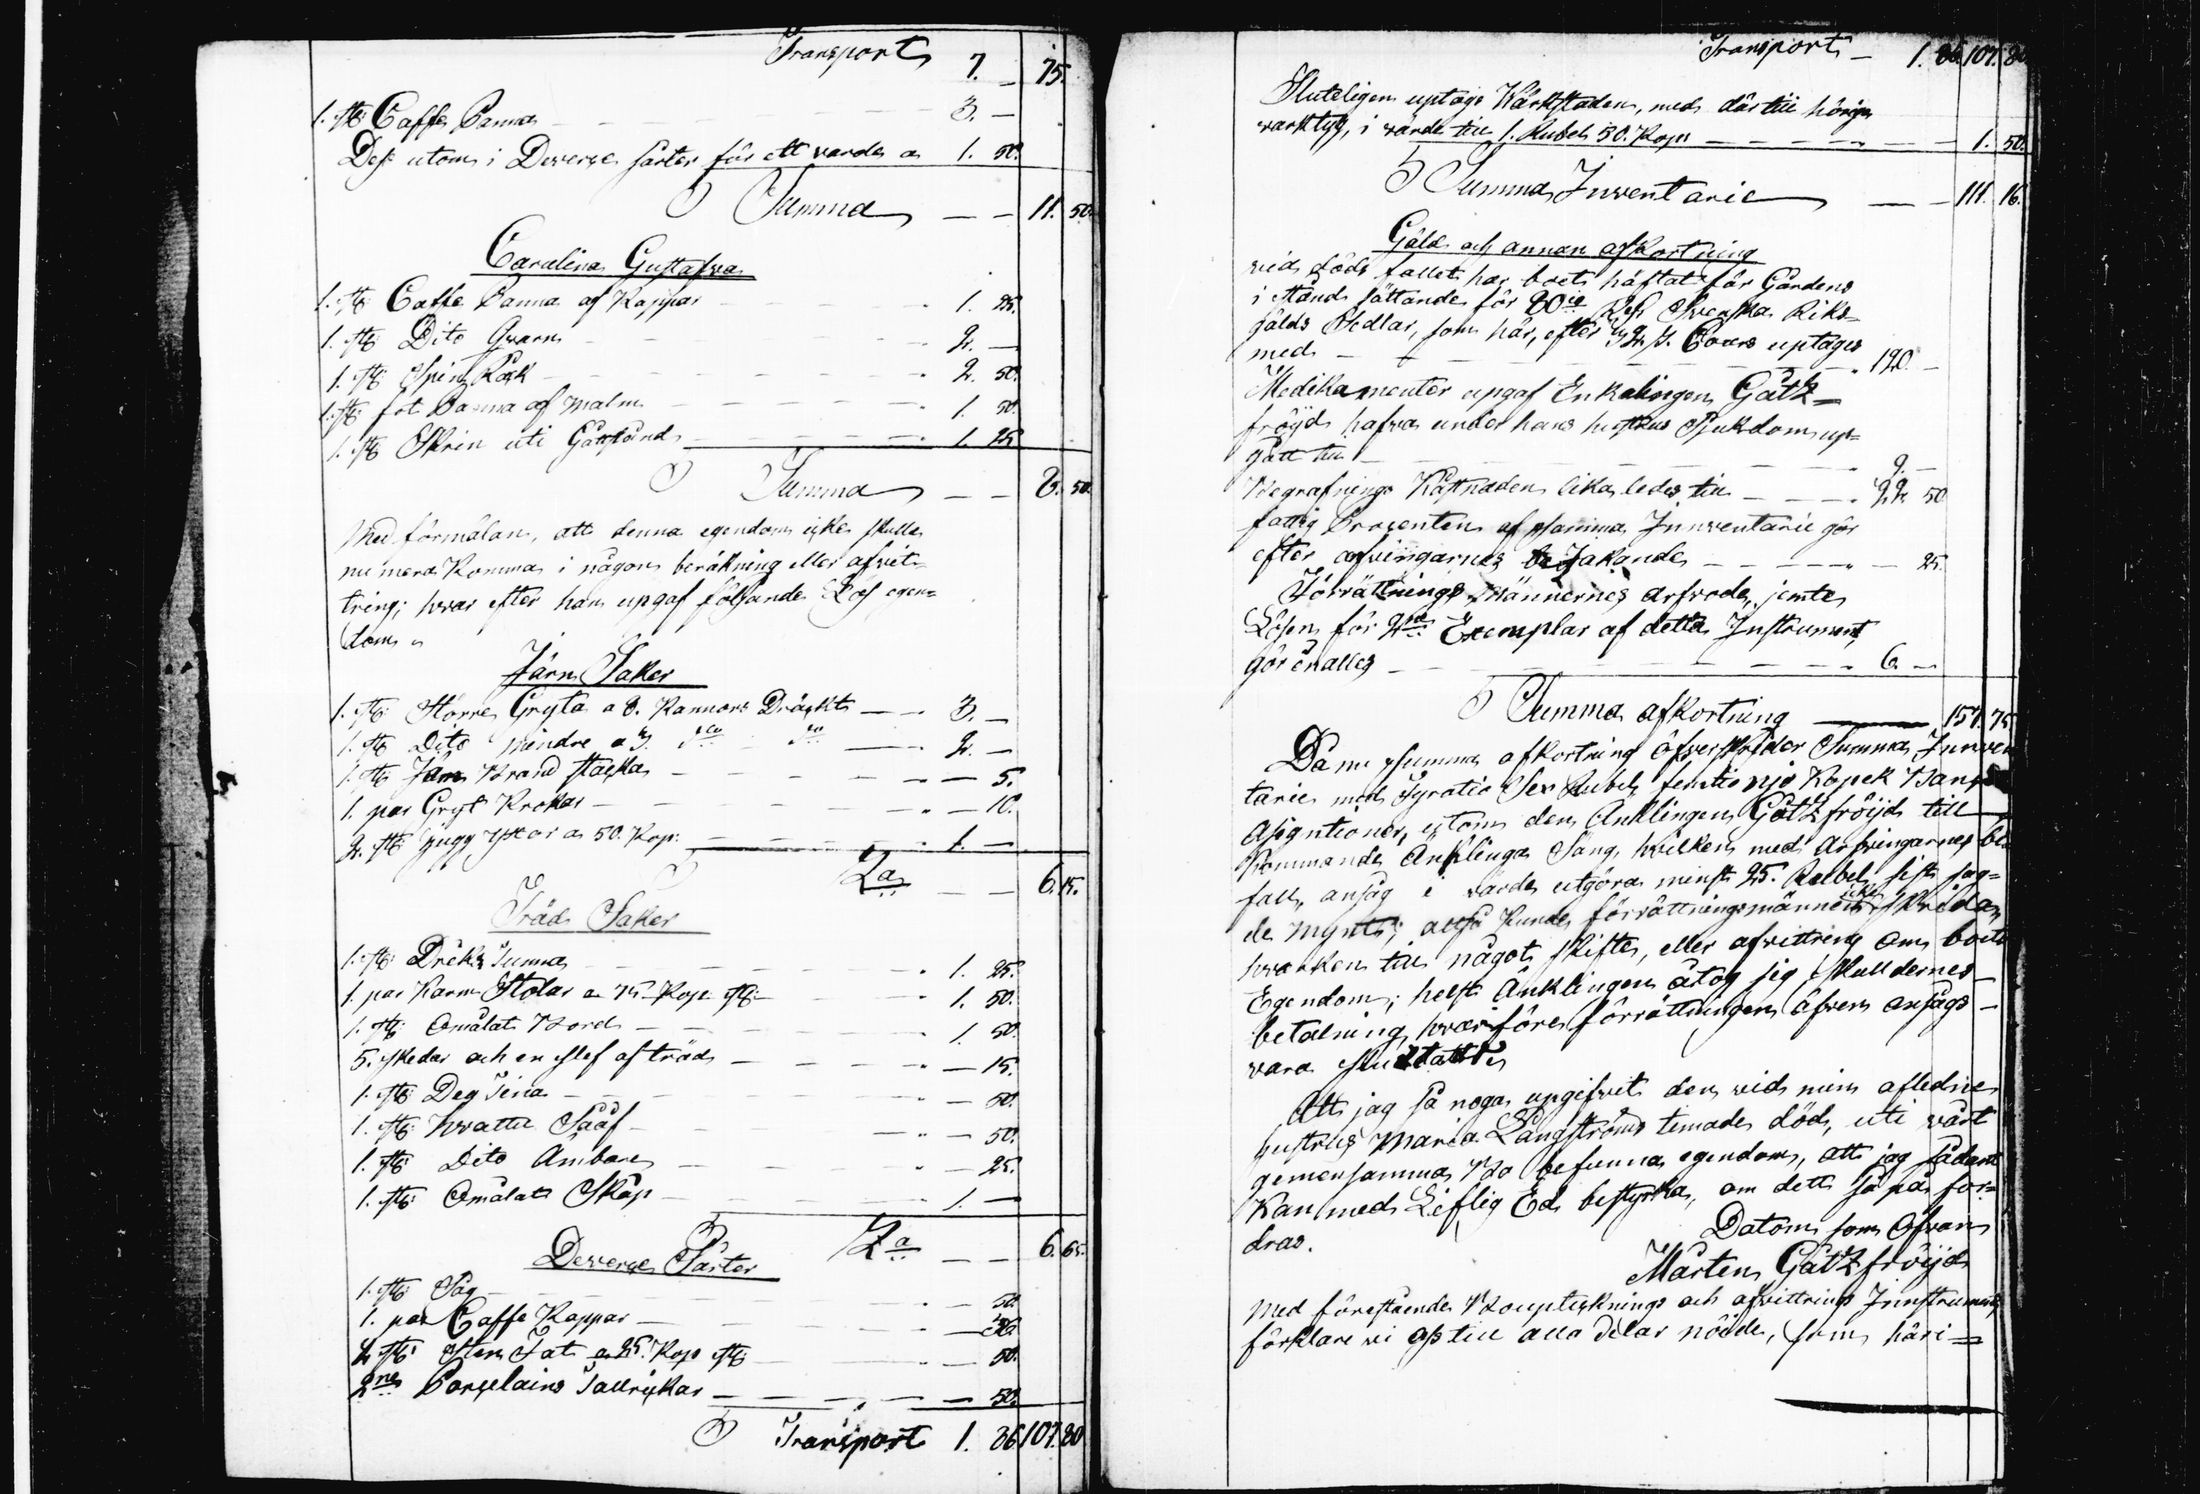 Transport 7. 75.
1. st: Caffe Panna — 3. —
Dess utom i Deverse sarter för ett varde a 1. 50.
Summa — — 11. 50.
Carolina Gustafva
1. st: Caffe Panna af Kappar — 1. 25.
1. st: Dito Qvarn — 2. —
1. st: Spin Råck — 2. 50.
1. st: fot Panna af malm — 1. 50.
1. st: Skrin uti — 1. 25.
Summa — — 8. 50.
Med förmälan, att denna egendom icke skulle
nu mera Komma i någon beräkning eller afvit-
tring; hvar efter han upgaf följande Lös egen=
dom
Järn Saker
1. st: Större Gryta a 8. Kannors Dräckt — 3. —
1. st: Dito mindre a 3. d:o d:o — 2. —
1. st: Järn Brand stacka — 5.
1. par Gryt Krokar — 10.
2. st: Yxor a 50. Kop: — 1. —
S:a — — 6. 15.
Träd Saker
1. st: Drick Tunna — 1. 25.
1. par Karm Stolar a 75 Kop st: — 1. 50.
1. st: Omålat Bord — 1. 50.
5. skedar och en slef af träd — 15.
1. st: Deg Tina — 50.
1. st: Vattu Sååf — 50.
1. st: Dito Ämbare — 25.
1. st: Omålat Skåp — 1. —
S:a — — 6. 65.
Deverse Sarter
1. st: Såg — 50.
1. par Caffe Kappar — 36.
2 st: Sten Fat a 25. Kop st: — 50.
2ne Porselains Tallrickar — 50.
Transport 1. 86 107. 80
Transport — 1. 86. 107. 80
Sluteligen uptogs Värkstaden, med där till hörige
varktyg, i värde till 1. Rubel 50. Kop: — 1. 50.
Summa Inventarie — — 111. 16.
Gäld och annan afkortning
vid döds fallet har boet häftat för Gårdens
i stånd sättande för 80:ie Rdr Svenska Riks=
gälds Sedlar, som här, efter Cours uptages
med — 120. —
Medikamenter upgaf Enkelingen Götz=
fröijd hafva under hans hustrus Sjukdom up=
gått till — 9. —
Begrafnings Kåstnaden lika ledes till — 22. 50
fattig Procenten af samma Innventarie gör
efter arfvingarnes bejakande — 25.
Förrättnings männernes arfvode, jemte
Lösen för 2ne Exemplar af detta Instrument,
gör enalles — 6. —
Summa afkortning — 157. 75
Då nu summa afkortning öfverskrider Summa Inven
tarie med Fyratio Sex Rubel femtio njo Kopek Banco
Asigntioner, utom den Änklingen Götzfröijd till
kommande Änklinga Säng, hvilken med Arfvingarnes bi
fall, ansåg i värde utgöra minst 25. Rubel sist sag=
de mynt; altså kunde förrättningsmännen icke skrida
hvarken till något skifte, eller afvittring om boets
Egendom; helst Änklingen åtog sig skulldernes
betalning, hvarföre förrättningen äfven ansågs
vara sluutatt
Att jag så noga upgifvit den vid min afledne
hustrus Maria Långströms timade död, uti vårt
gemensamma Bo befunna egendom, att jag sådant
Kan med Liflig Ed bestyrka, om dett så på for=
dras. Datum som Ofvan
Mårten Götzfröijd
Med förestående Boupteknings och afvittrings Innstrument
förklare vi oss till alla delar nöide, som häri=